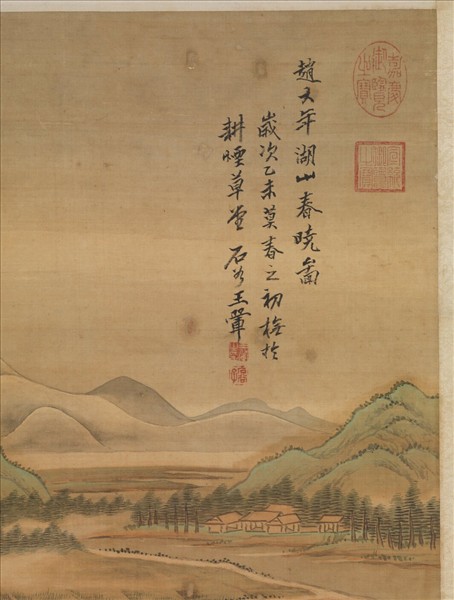 趙大年湖山春曉圖
歲次乙未莫春之初於
耕煙草堂 石谷王翬
嘉慶御覽之寶